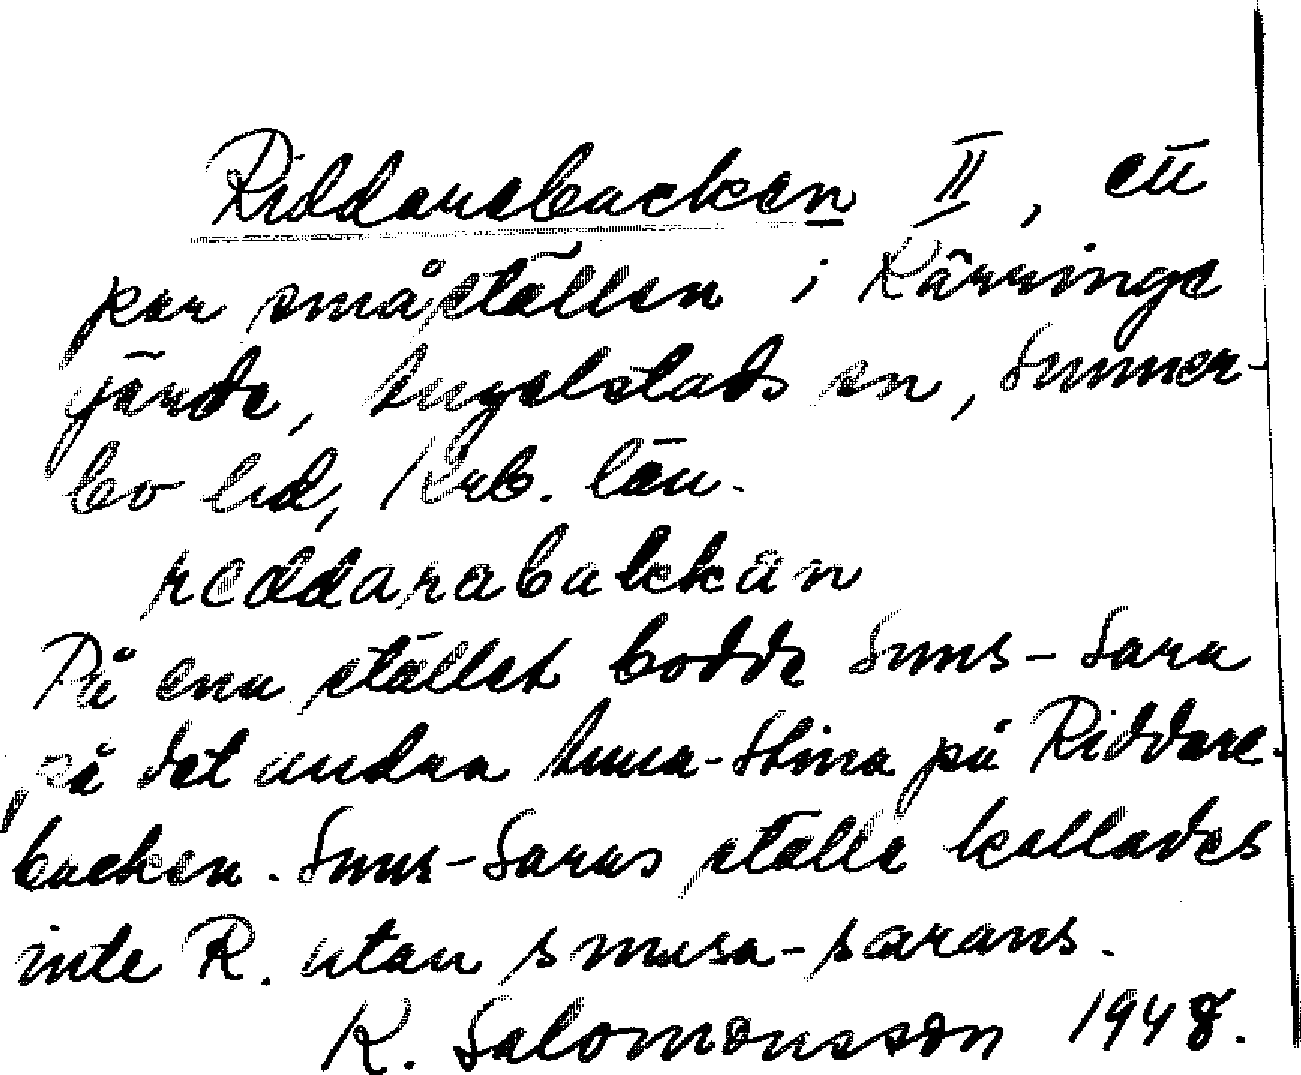 Riddarebacken II, ett
par småställen i Kärringe
gärde, Angelstads sn, Sunner-
bo hd, Krb. län.
reddarabakkan
På ena stället bodde Smus-Sara
på det andra Anna-Stina på Riddare-
backen. Smus-Saras ställe kallades
inte R. utan smusa-sarans.
K. Salomonsson 1948.